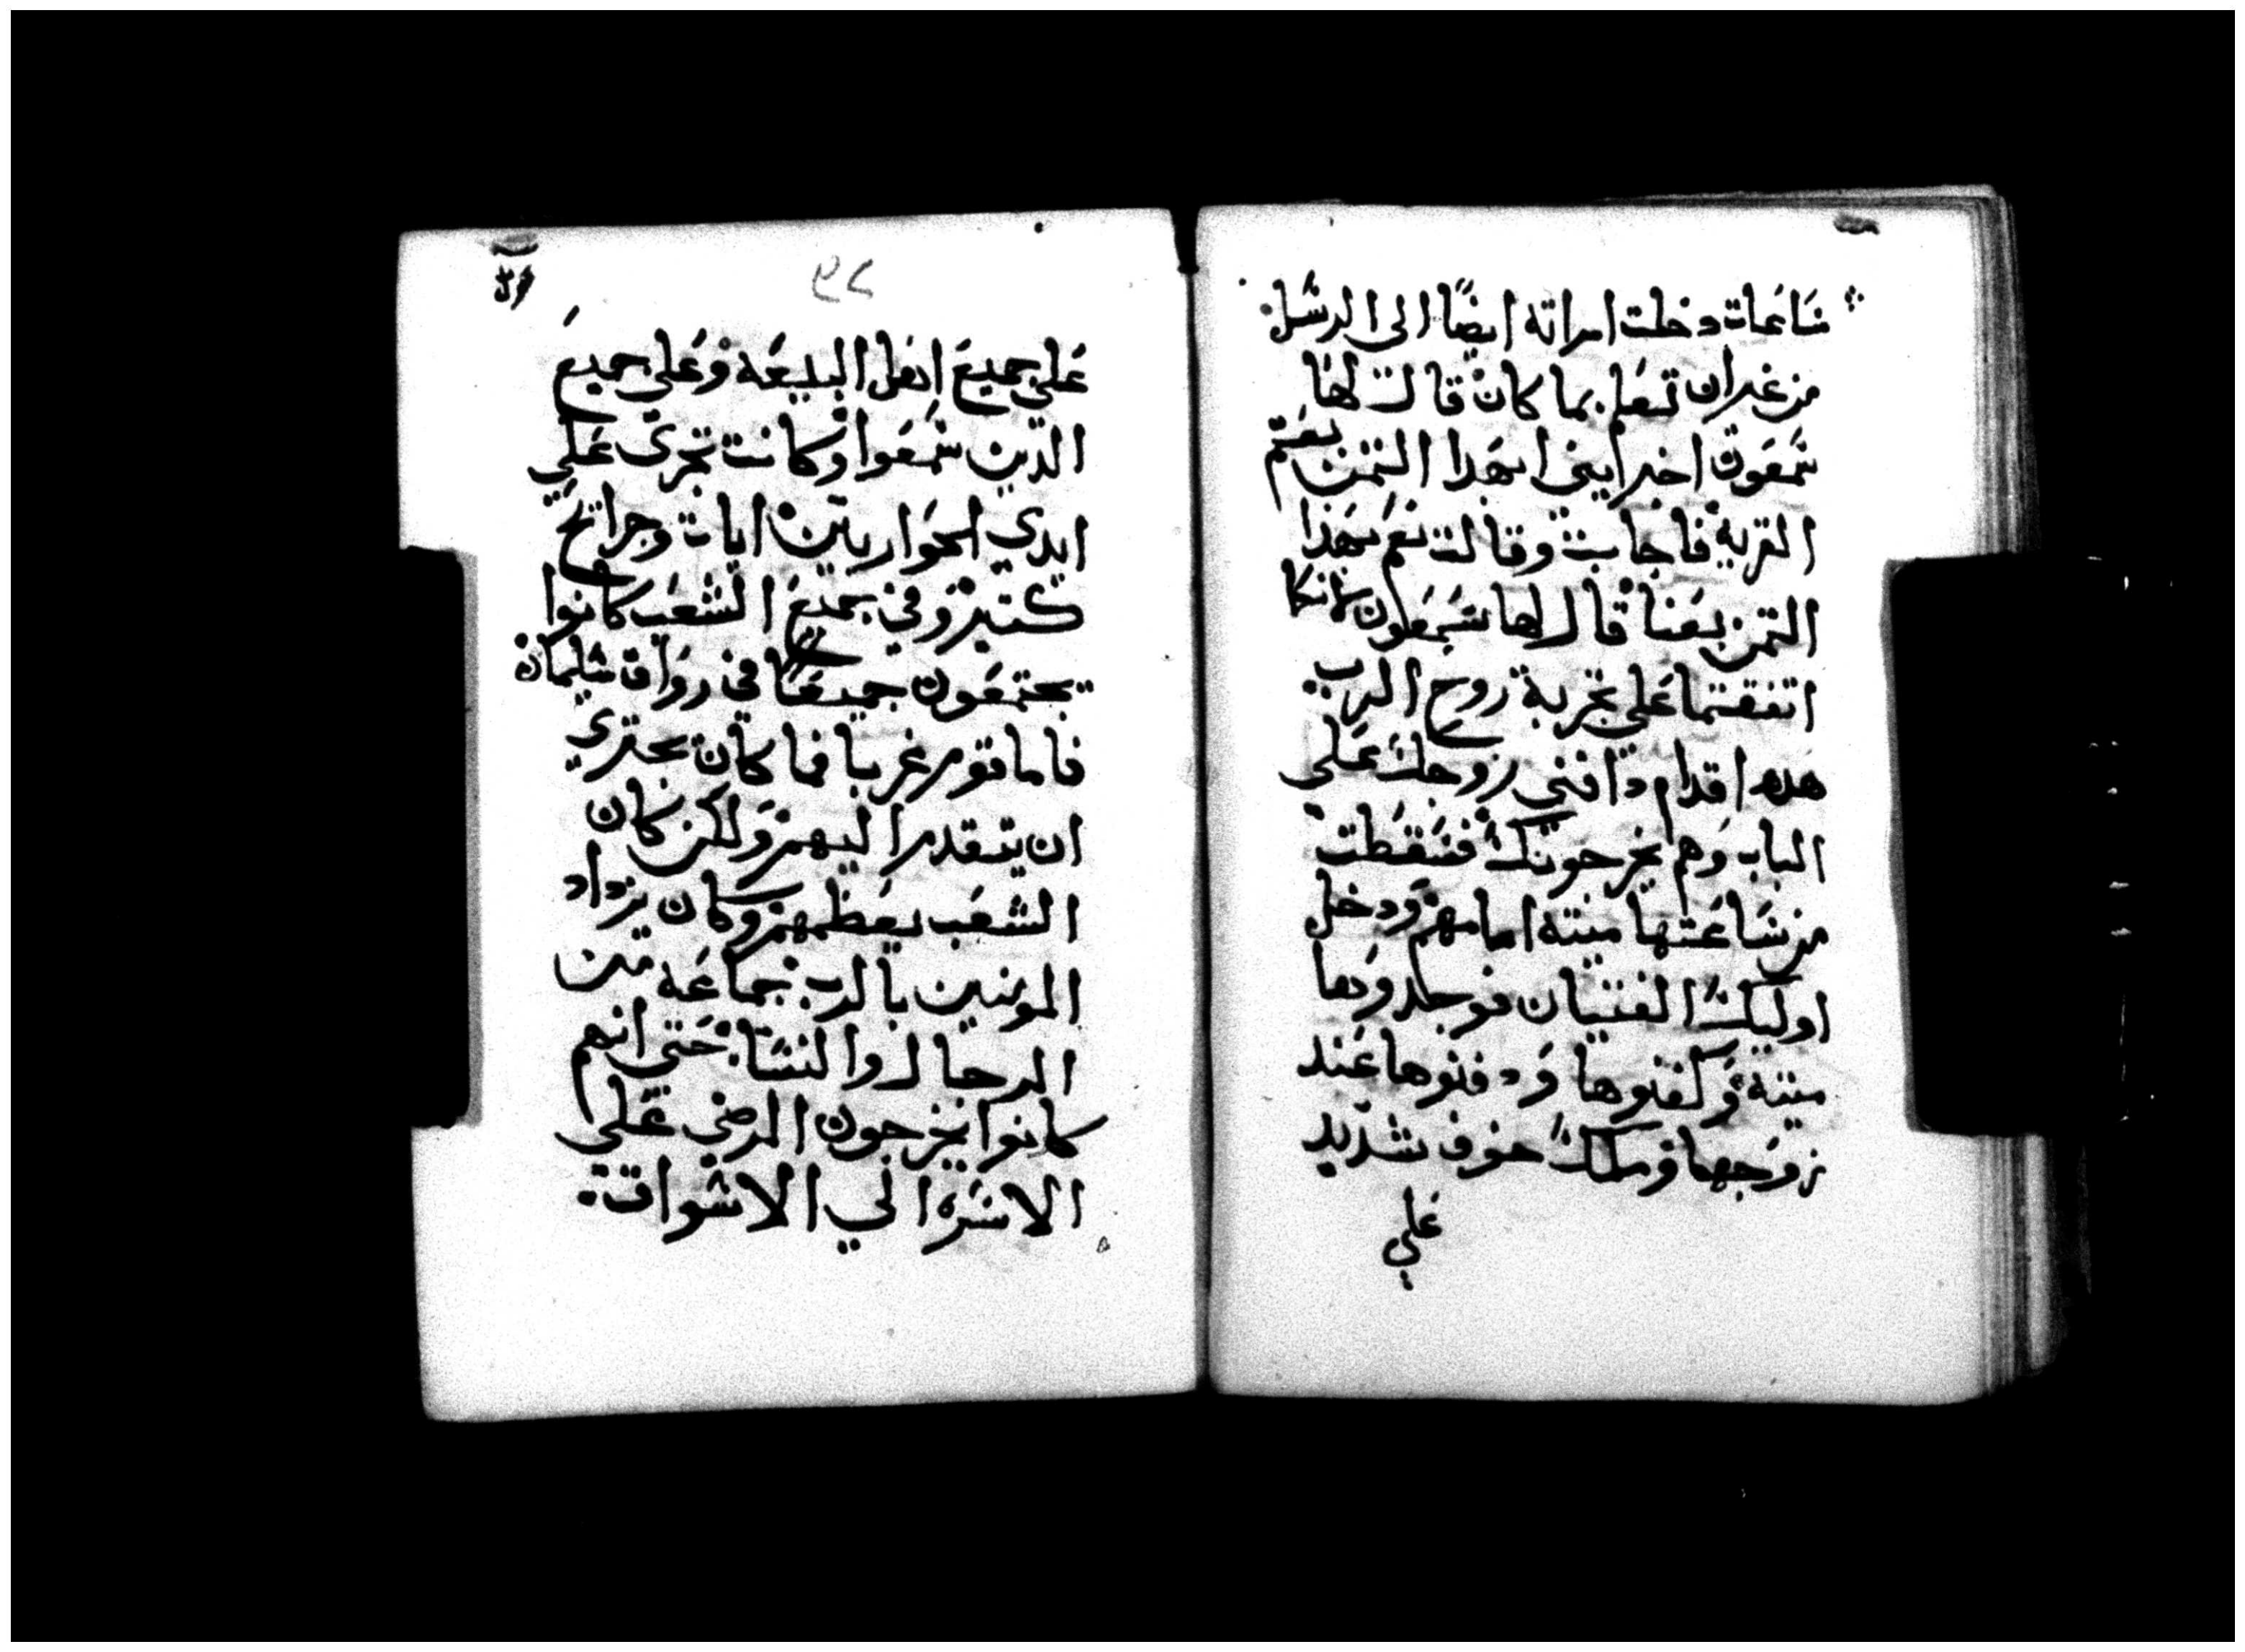 ساعات دخلت امراته ايضًا الى الرسل
من غير ان تعلم بما كان قال لها
شمعون اخبرايني ابهدا التمن بعتم
القرية فاجابت وقالت نعم بهدا
التمن بعنا قال لها شمعون لانكما
اتفقتما على تجربة روح الرب
هده اقدام دافني زوجك علي
الباب وهم يخرجونك فسقطت
من ساعتها ميتة امامهم ودخل
اوليك الفتيان فوجدوها
ميتة وكفنوها ودفنوها عند
زوجها وملك خوف شديد
علي
٢٩
على جميع اهل البيعه وعلى جميع
الدين سمعوا وكانت تجرى علي
ايدي الحواريين ايات وجرايح
كتيرة وفي جميع الشعب كانوا
يجتمعون جميعًا في رواق سليمان
فاما قوم غربا فما كان يجتري
ان يتقدم اليهم ولكن كان
الشعب يعظمهم وكان يزداد
المومنين بالرب جماعه من
الرجال والنسا حتي انهم
كانوا يخرجون المرضي علي
الاسره الي الاسواق